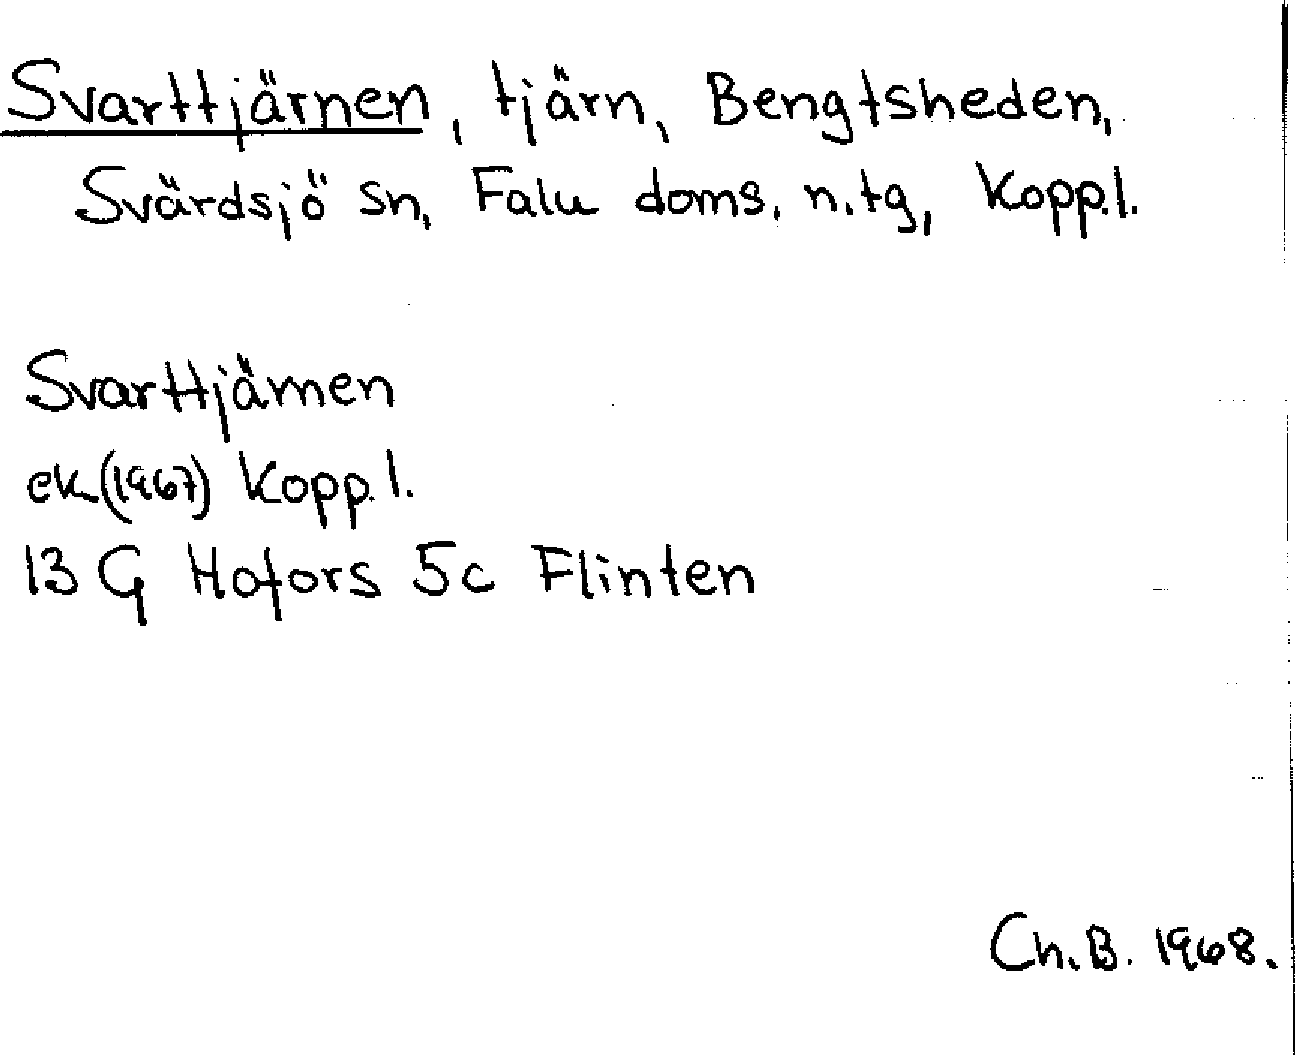 Svarttjärnen, tjärn, Bengtsheden,
Svärdsjö sn, Falu doms. n. tg, Kopp.l.
Svarttjärnen
ek (1967) Kopp. l.
13 G Hofors 5c Flinten
Ch. B. 1968.